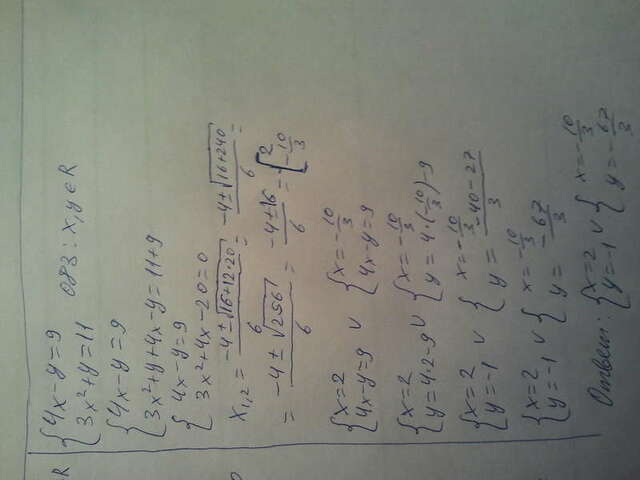 {4x-y=9
3x²+y=11 ОВЗ: x,y∈R
{4x-y=9
3x²+y+4x-y=11+9
{4x-y=9
3x²+4x-20=0
x₁,₂ = (-4±√(16+12·20))/6 = (-4±√(16+240))/6 =
= (-4±√256)/6 = (-4±16)/6 = [2; -10/3
{x=2 ∨ {x=-10/3
4x-y=9 4x-y=9
{x=2 ∨ {x=-10/3
y=4·2-9 y=4·(-10/3)-9
{x=2 ∨ {x=-10/3
y=-1 y=(-40-27)/3
{x=2 ∨ {x=-10/3
y=-1 y=-67/3
Ответ: {x=2 ∨ {x=-10/3
y=-1 y=-67/3
R